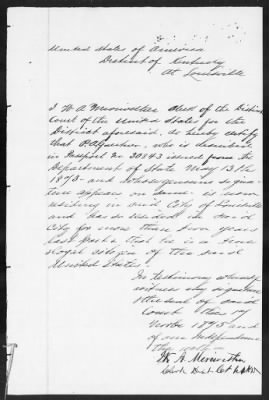 United States of America
District of Kentucky
At Louisville
I W. A. Meriwether Clerk of the District
Court of the United States for the
District aforesaid, do hereby certify
that is described
in Passport No 30143 issued from the
Department of State May 13th
1873 and whose genuine signa
ture appears on same is now
residing in said City of Louisville
and has so resided in said
City for more than two years
last past & that he is a true
& loyal citizen of the said
United States.
In testimony whereof
witness my signature
& the seal of said
Court this
1875 and
of our Independence
the
W. A. Meriwether
Clerk Dist. Ct